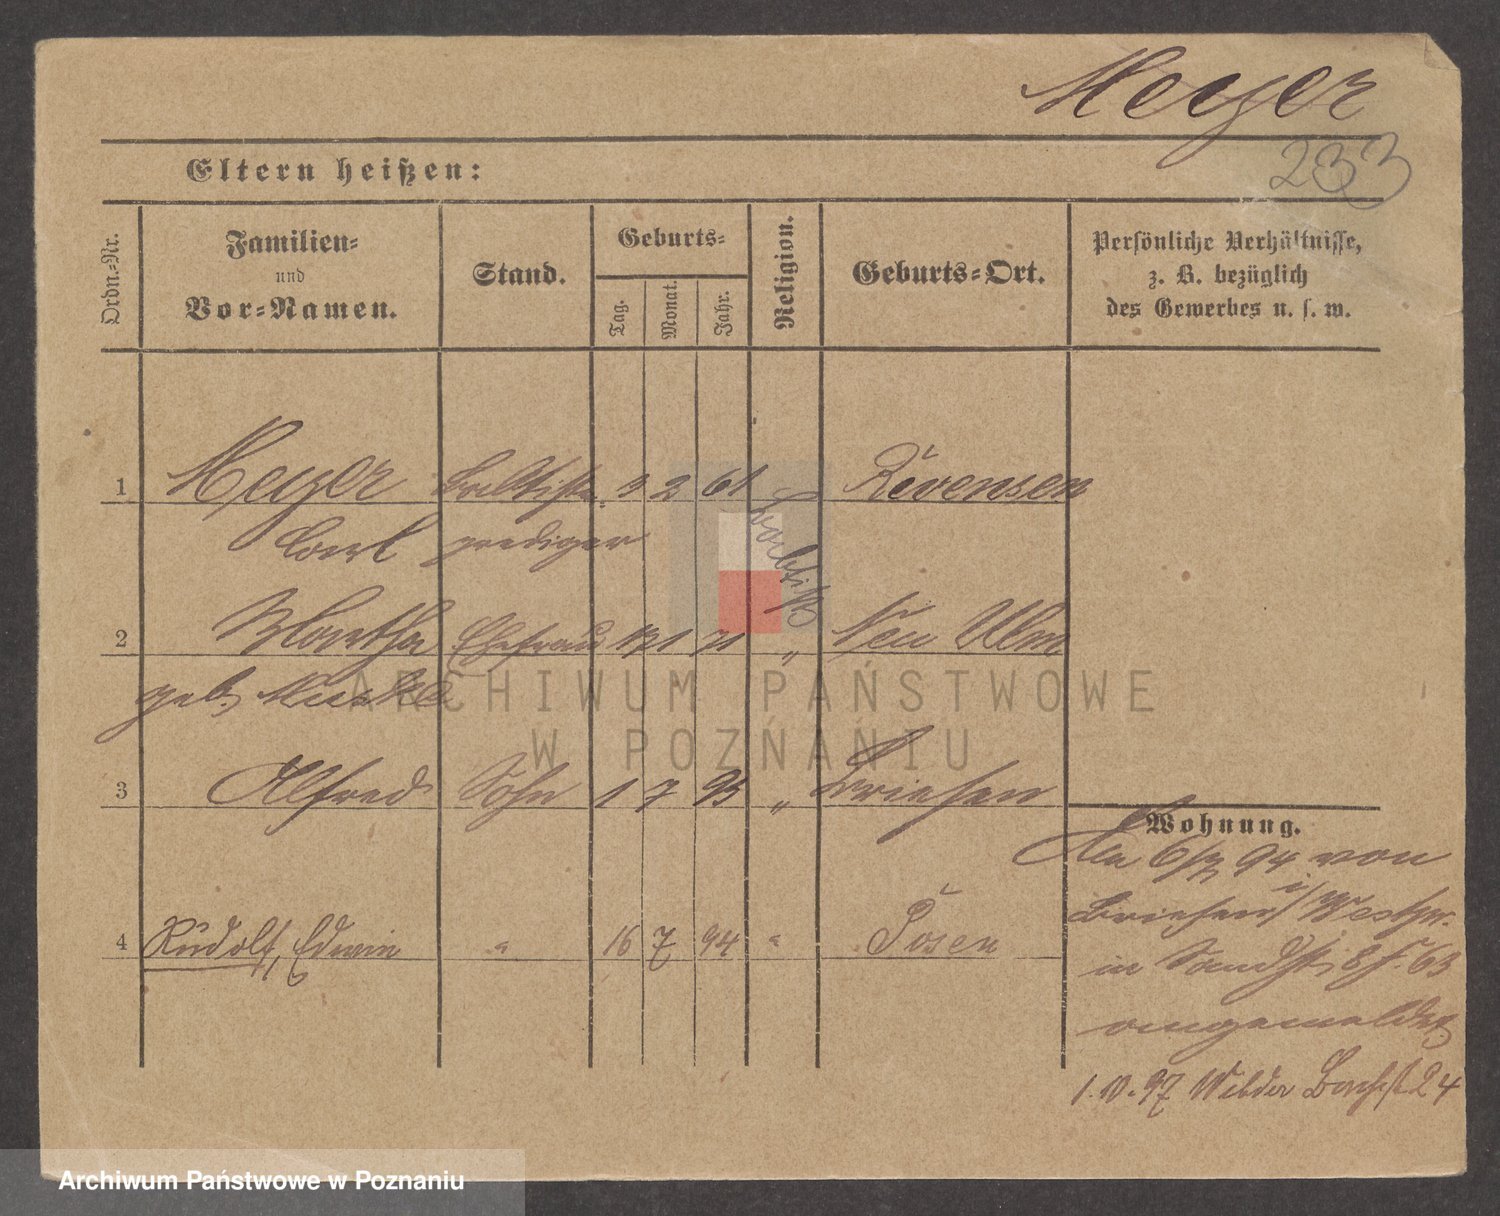 Meyer
233
Eltern heißen:
Ordn.-Nr.
Familien-
und
Vor-Namen.
Stand.
Geburts-
Tag.
Monat.
Jahr.
Religion.
Geburts-Ort.
Persönliche Verhältnisse,
z. B. bezüglich
des Gewerbes u. s. w.
1 Meyer Baptisten 3 2 61 Baptist Revensen
Carl prediger
2 Martha Ehefrau 1 71 " Neu Ulm
geb.
3 Alfred Sohn 1 7 93 " Briesen
Wohnung.
Den 6/3 94 von
Briesen i/Westpr.
in Sandstr. 8 f. 63
angemeldet
4 Rudolf, Edwin " 16 7 94 " Posen
1.10.97 Wilder Bachstr 24
ARCHIWUM PAŃSTWOWE
W POZNANIU
Archiwum Państwowe w Poznaniu